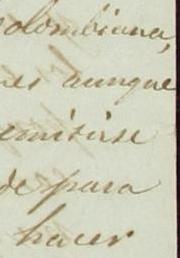 olombiana,
es aunque
emitirse
de para
hacer